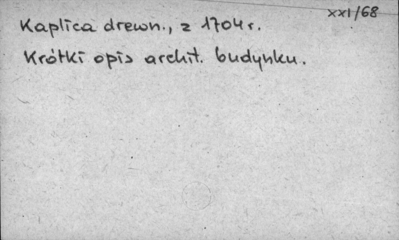 XXI/68
Kaplica drewn., z 1704 r.
Krótki opis archit. budynku.